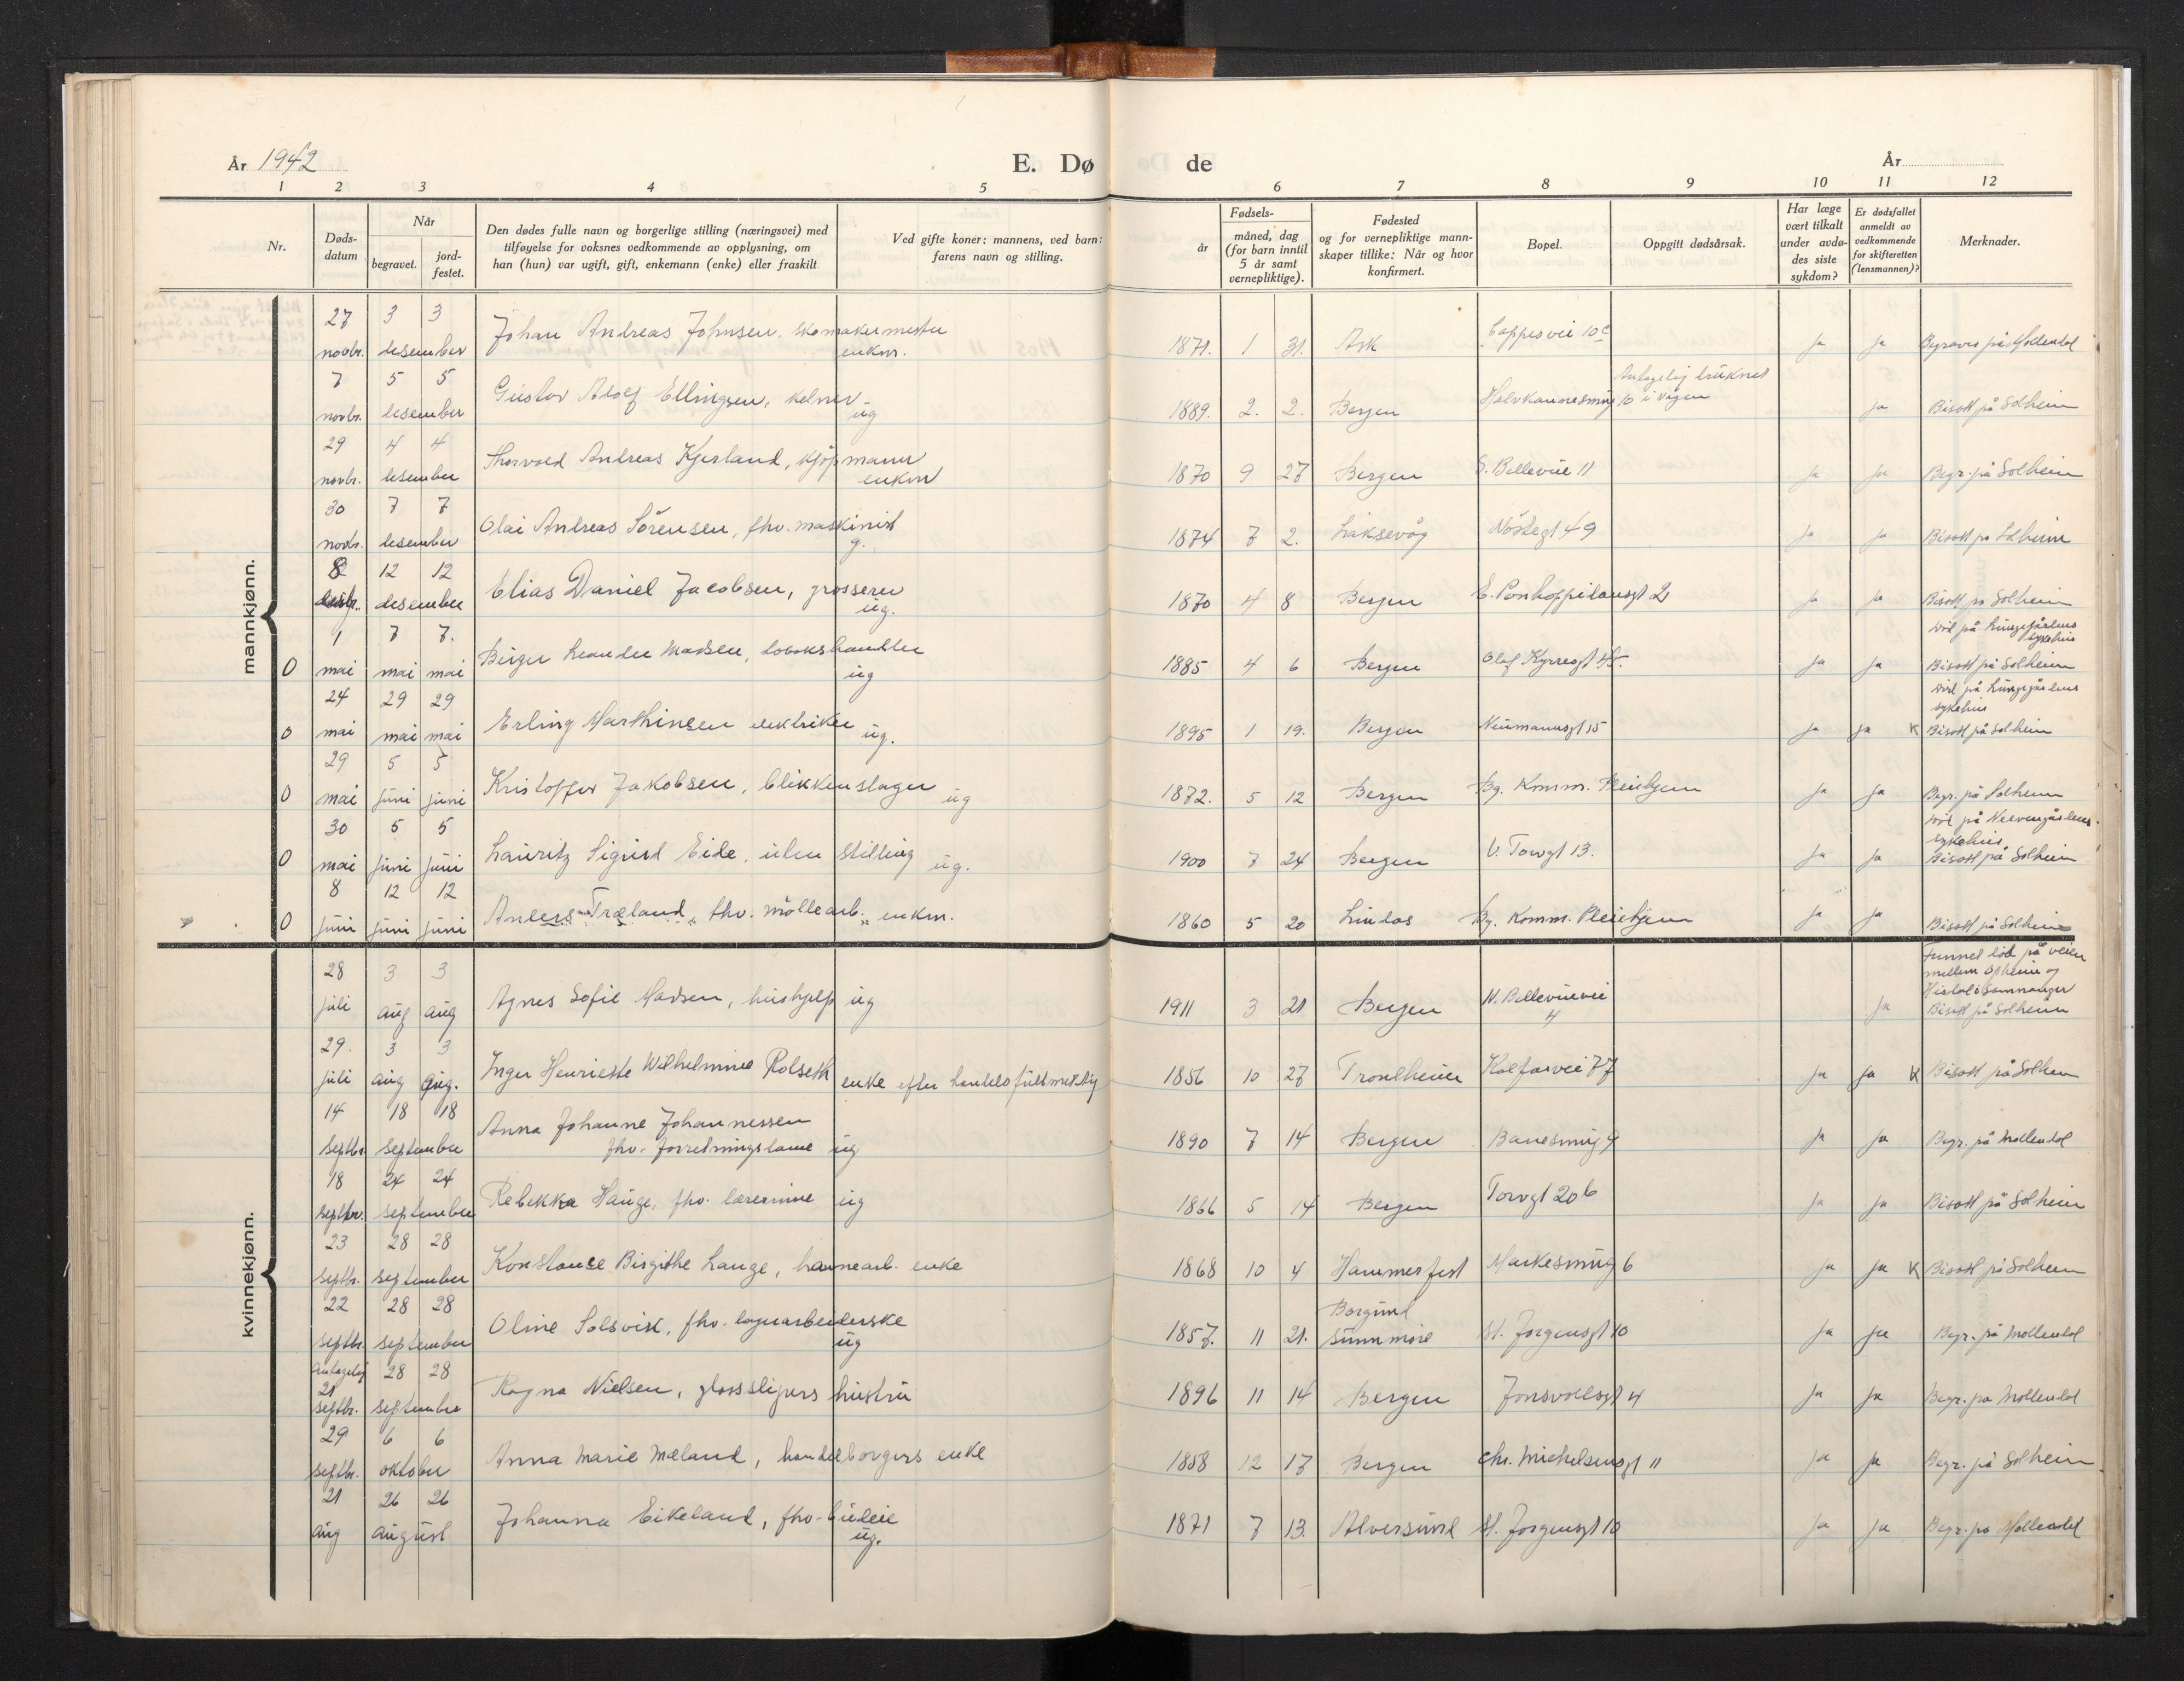 År 1942
E. Døde
År
1 2 3 4 5 6 7 8 9 10 11 12
Nr.
Døds-
datum
Når
begravet.
jord-
festet.
Den dødes fulle navn og borgerlige stilling (næringsvei) med
tilføyelse for voksnes vedkommende av opplysning, om
han (hun) var ugift, gift, enkemann (enke) eller fraskilt
Ved gifte koner: mannens, ved barn:
farens navn og stilling.
Fødsels-
år
måned, dag
(for barn inntil
5 år samt
vernepliktige).
Fødested
og for vernepliktige mann-
skaper tillike: Når og hvor
konfirmert.
Bopel.
Oppgitt dødsårsak.
Har læge
vært tilkalt
under avdø-
des siste
sykdom?
Er dødsfallet
anmeldt av
vedkommende
for skifteretten
(lensmannen)?
Merknader.
mannkjønn.
27 novbr. 3 3 desember Johan Andreas Johnsen, skomakermester enkm. 1871. 1 31. Ask 10c ja ja Begraves på Møllendal
7 novbr. 5 5 desember Gustav Adolf Ellingsen, kelner ug 1889. 2. 2. Bergen Halvkannesmug 10 Antagelig druknet i Vågen ja Bisatt på Solheim
29 novbr. 4 4 desember Thorvald Andreas Kjerland, kjøpmann enkm 1870 9 27 Bergen S. Bellevue 11 ja ja Begr. på Solheim
30 novbr. 7 7 desember Olai Andreas Sörensen, fhv. maskinist g. 1874 7 2. Laksevåg Nöstegt 49 ja ja Bisatt på Solheim
8 desbr. 12 12 desember Elias Daniel Jacobsen, grosserer ug. 1870 4 8 Bergen E. Pontoppidansgt 2 ja ja Bisatt på Solheim
0 1 mai 7 7. mai mai Birger Leander Madsen, tobakshandler ug 1885 4 6 Bergen Olaf Kyrresgt ja ja Död på Lungegårdens sykehus Bisatt på Solheim
0 24 mai 29 29 mai mai Erling Marthinsen elektriker ug. 1895 1 19. Bergen Neumannsgt 15 ja ja Död på Lungegårdens sykehus K Bisatt på Solheim
0 29 mai 5 5 juni juni Kristoffer Jakobsen, blikkenslager ug 1872. 5 12 Bergen Bg. Komm. Pleiehjem ja ja Begr. på Solheim
0 30 mai 5 5 juni juni Lauritz Sigurd Eide, uten stilling ug. 1900 7 24 Bergen V. Torvgt 13. ja ja Död på Neevengårdens sykehus Bisatt på Solheim
0 8 juni 12 12 juni juni Anders Træland, fhv. möllearb. enkm. 1860 5 20 Lindås Bg. Komm. Pleiehjem ja ja Bisatt på Solheim
kvinnekjønn.
28 juli 3 3 aug aug Agnes Sofie Madsen, hushjelp ug 1911 3 21 Bergen N. Bellevuevei 4 ja Funnet död på veien mellem og i Samnanger Bisatt på Solheim
29. juli 3 3 aug aug. Inger Henriette Wilhelmine Rolseth enke efter handelsfullmektig 1856 10 27 Trondheim Kalfarvei 77 ja ja K Bisatt på Solheim
14 septbr. 18 18 september Anna Johanne Johannessen fhv. forretningsdame ug 1890 7 14 Bergen Banesmug 9 ja ja Begr. på Møllendal
18 septbr. 24 24 september Rebekka Hauge, fhv. lærerinne ug 1866 5 14 Bergen Torvgt 20b ja ja Bisatt på Solheim
23 septbr. 28 28 september Konstanse Birgithe Lange, havnearb. enke 1868 10 4 Hammerfest Markesmug 6 ja ja K Bisatt på Solheim
22 septbr. 28 28 september Oline Solsvik, fhv. lagerarbeiderske ug 1857. 11 21. Borgund Sunnmöre St. Jörgensgt 10 ja ja Begr. på Møllendal
Antagelig 21 septbr. 28 28 september Ragna Nielsen, glassslipers hustru 1896 11 14 Bergen Jonsvollsgt 4 ja ja Begr. på Møllendal
29 septbr. 6 6 oktober Anna Marie Mæland, handelborgers enke 1858 12 17 Bergen Chr. Michelsensgt 11 ja ja Begr. på Solheim
21 aug 26 26 august Johanna Eikeland, fhv. budeie ug. 1871 7 13. Alversund St. Jörgensgt 10 ja ja Begr. på Møllendal